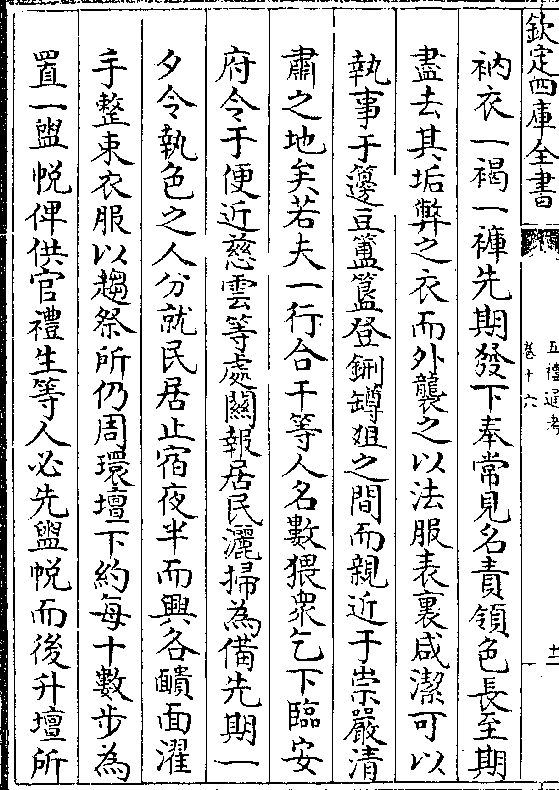 欽定四庫全書
五禮通考
卷十六
十一
衲衣一褐一褲先期發下奉常見名責領色長至期
盡去其垢弊之衣而外襲之以法服表裏咸潔可以
執事于籩豆簠簋登鉶罇俎之間而親近于崇嚴清
肅之地矣若夫一行合干等人名數猥衆乞下臨安
府令于便近慈雲等處關報居民灑掃為備先期一
夕令執色之人分就民居止宿夜半而興各靧面濯
手整束衣服以趨祭所仍周環壇下約每十數步為
置一盥帨俾供官禮生等人必先盥帨而後升壇所